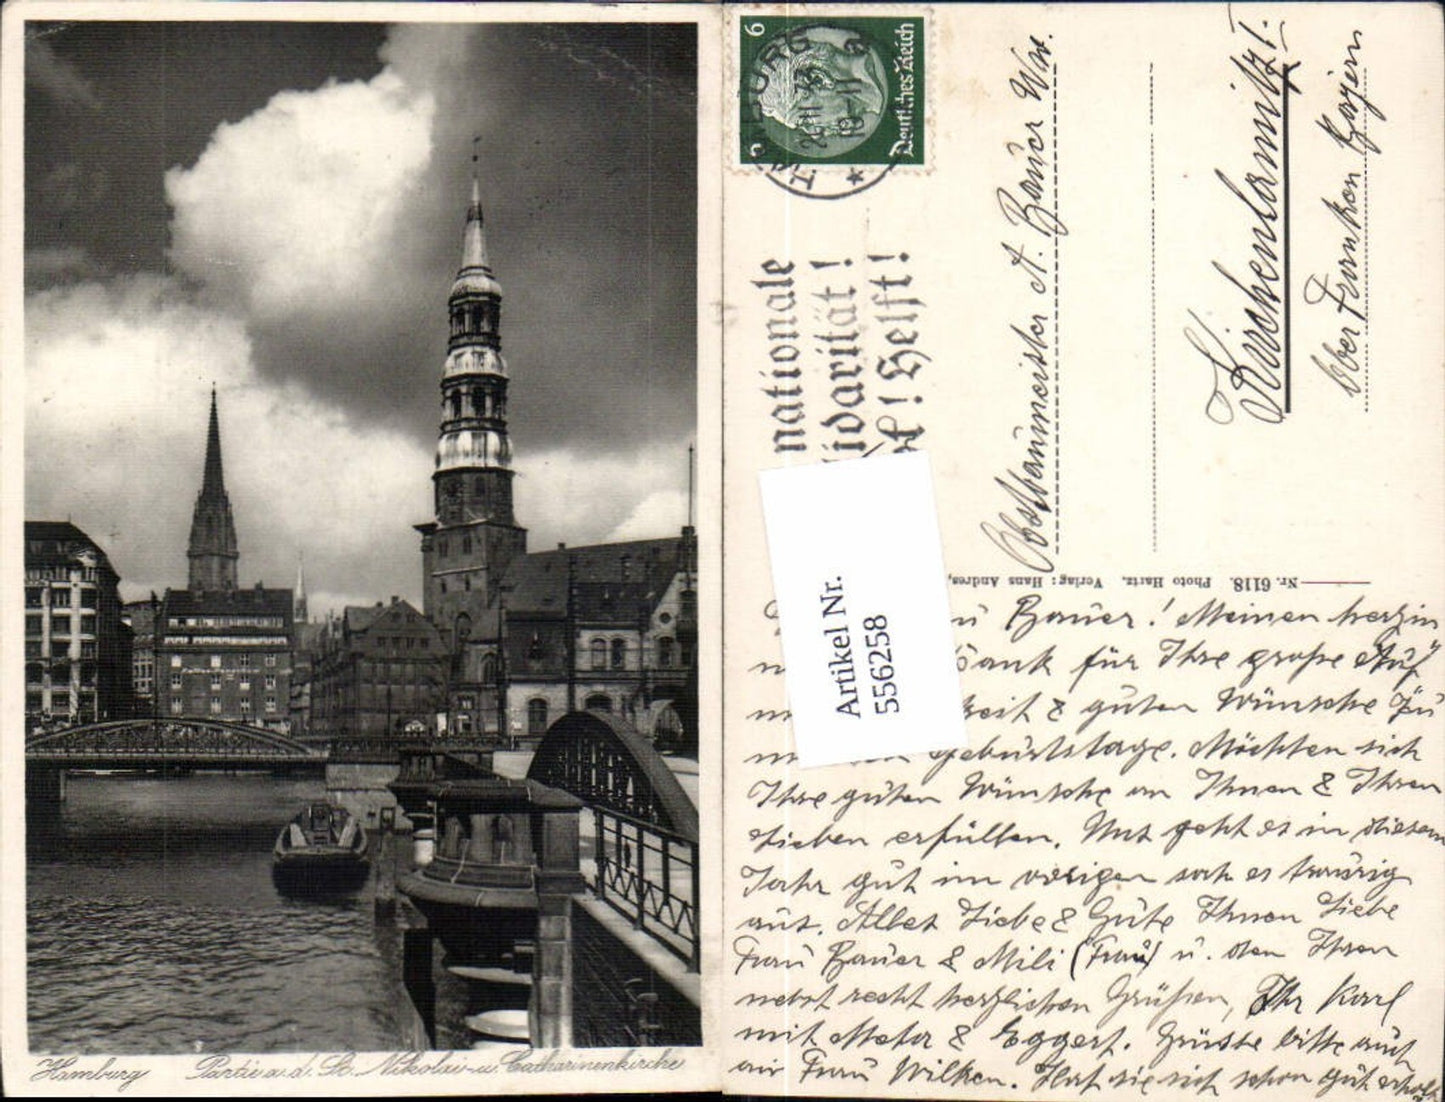 Hamburg Partie a. d. St. Nikolai- u. Catharinenkirche
6
Deutsches Reich
HAMBURG
10-11
nationale
lidarität!
! Helft!
Obstbaumeister A. Bauer Ww.
Kirchenlamitz I.
Ober Franken Bayern
Nr. 6118. Photo Hartz. Verlag: Hans Andres,
Artikel Nr.
556258
Bauer! Meinen herzin
Dank für Ihre große Auf
keit & guten Wünsche zu
Geburtstage. Möchten sich
Ihre guten Wünsche an Ihnen & Ihren
Lieben erfüllen. Uns geht es in diesem
Jahr gut im vorigen sah es traurig
aus. Alles Liebe & Gute Ihnen Liebe
Frau Bauer & Mili (Frau) u. den Ihren
nebst recht herzlichen Grüßen, Ihr Karl
mit & Eggert. Grüße bitte auch
Frau Wilken. Hat sie sich schon gut erholt